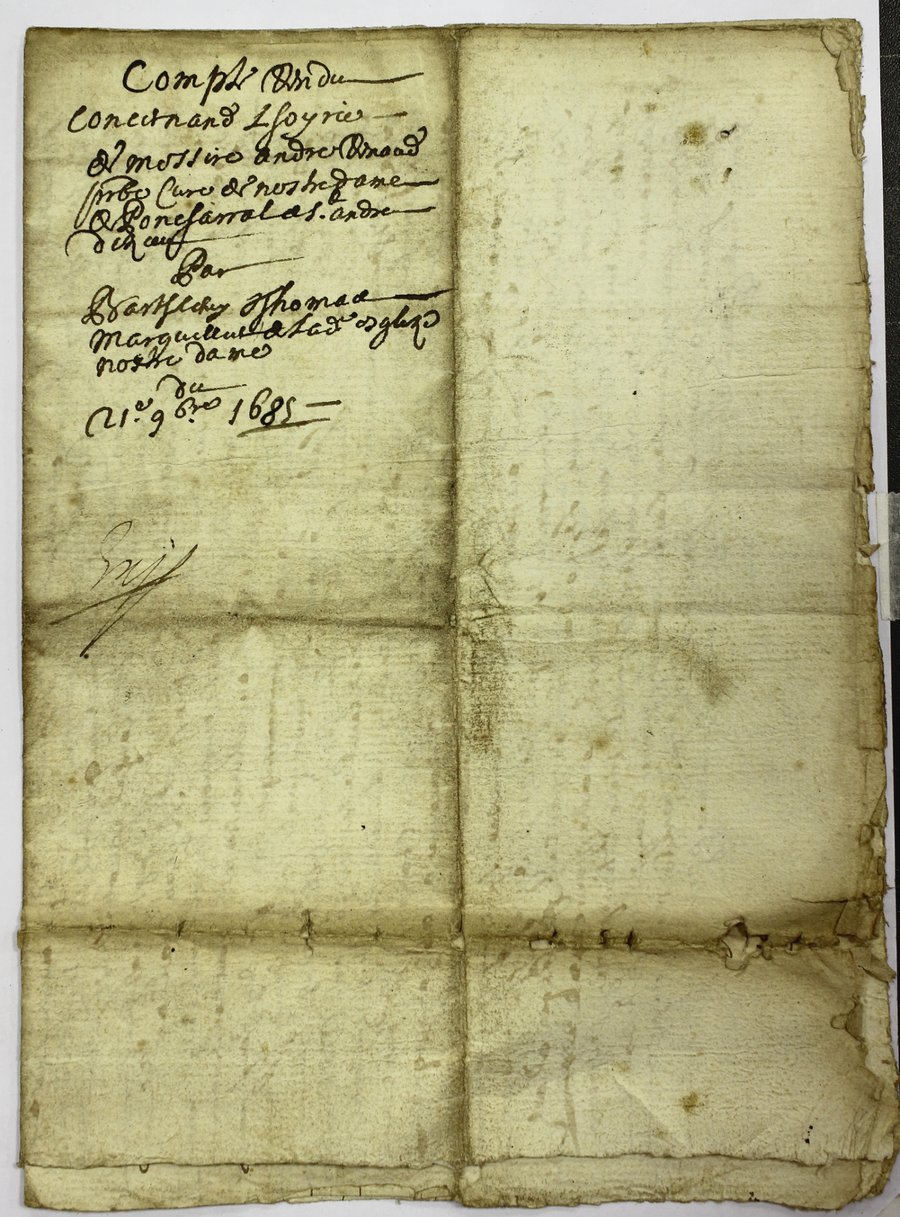 Compte Rendu
Concernand Lhoyrie
de messire andre Renaud
prbe Cure de nostre dame
de Ponc & S. andre
Par
Barthelemy Thomas
Marguellier de lade esglize
nostre dame
du
21e 9bre 1685